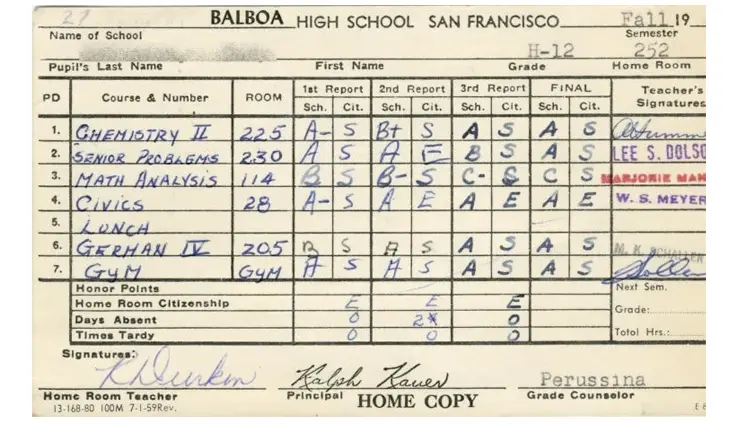 27 BALBOA HIGH SCHOOL SAN FRANCISCO Fall 19
Name of School Semester
H-12 252
Pupil's Last Name First Name Grade Home Room
PD Course & Number ROOM 1st Report 2nd Report 3rd Report FINAL Teacher's Signatures
Sch. Cit. Sch. Cit. Sch. Cit. Sch. Cit.
1. CHEMISTRY II 225 A- S B+ S A S A S
2. SENIOR PROBLEMS 230 A S A E B S A S LEE S. DOLSO
3. MATH ANALYSIS 114 B S B- S C- S C S MARJORIE MAN
4. CIVICS 28 A- S A E A E A E W. S. MEYER
5. LUNCH
6. GERMAN IV 205 B S A S A S A S M. K. SCHALLER
7. GYM GYM A S A S A S A S
Honor Points Next Sem.
Home Room Citizenship E E E
Days Absent 0 2 0 Grade:
Times Tardy 0 0 0 Total Hrs.:
Signatures:
Ralph Kauer Perussina
Home Room Teacher Principal HOME COPY Grade Counselor
13-168-80 100M 7-1-59Rev. E 8